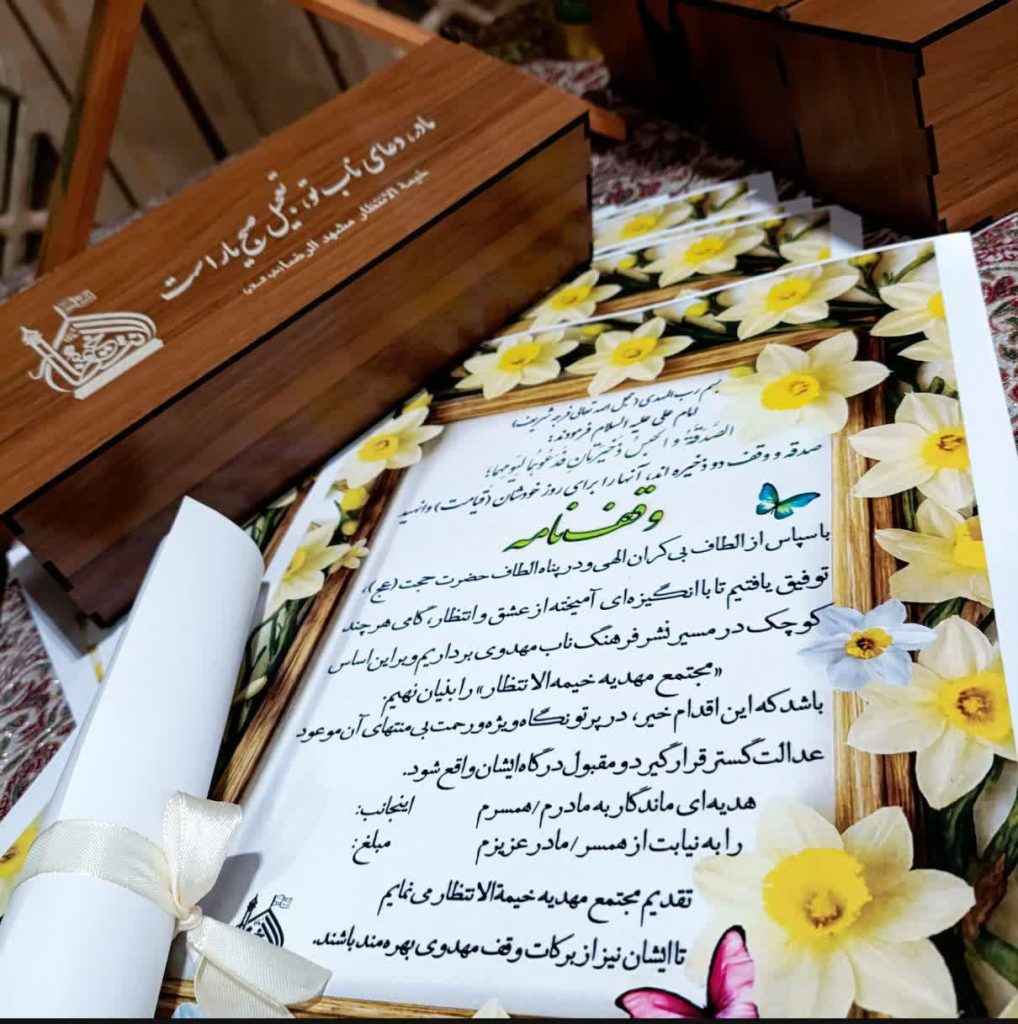 مادر، دعای ناب تو، تعجیل صبح یار است
خیمة الانتظار مشهد الرضا
بسم رب المهدی (عجل الله تعالی فرجه شریف)
امام علی علیه السلام فرمودند:
الصَّدَقَةُ و الحبسُ ذَخیرَتانِ فَدَعُوهُما لِیَومِهِما؛
صدقه و وقف دو ذخیره اند، آنها را برای روز خودشان (قیامت) وانهید
وقفنامه
با سپاس از الطاف بی کران الهی و در پناه الطاف حضرت حجت (عج)،
توفیق یافتیم تا با انگیزه ای آمیخته از عشق و انتظار، گامی هر چند
کوچک در مسیر نشر فرهنگ ناب مهدوی برداریم و بر این اساس
«مجتمع مهدیه خیمه الانتظار» را بنیان نهیم.
باشد که این اقدام خیر، در پرتو نگاه ویژه و رحمت بی منتهای آن موعود
عدالت گستر قرار گیرد و مقبول درگاه ایشان واقع شود.
هدیه ای ماندگار به مادرم/همسرم اینجانب:
را به نیابت از همسر/مادر عزیزم مبلغ:
تقدیم مجتمع مهدیه خیمة الانتظار می نمایم
تا ایشان نیز از برکات وقف مهدوی بهره مند باشند.